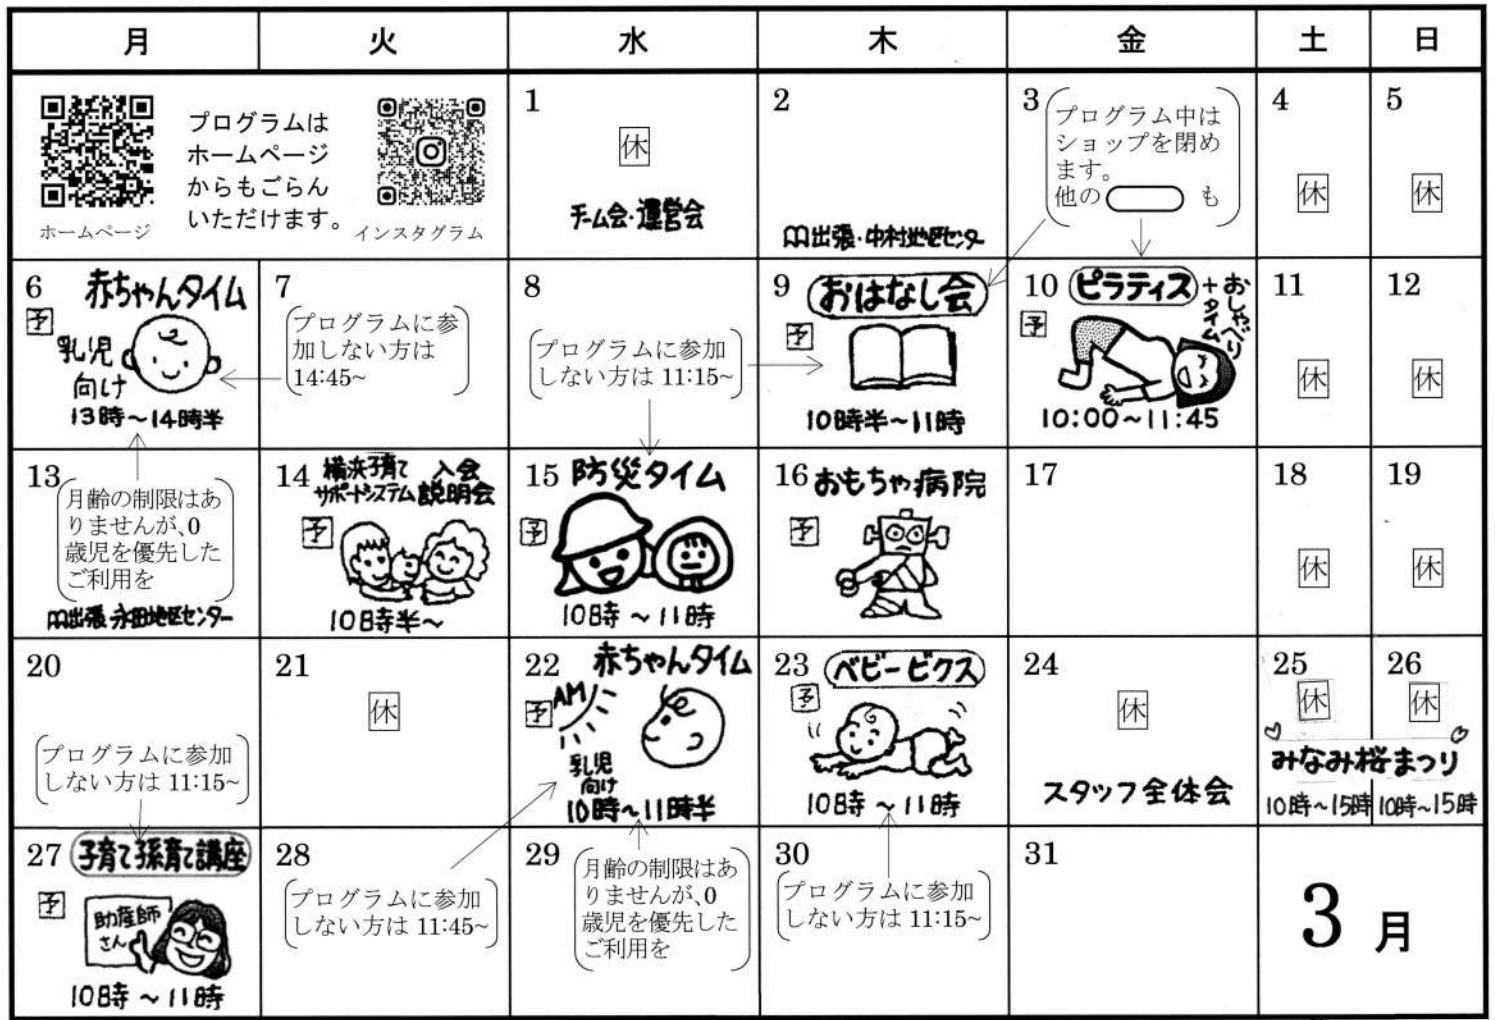 月 火 水 木 金 土 日
プログラムは
ホームページ
からもごらん
いただけます。
ホームページ
インスタグラム
1
休
チーム会・運営会
2
出張・中村地区センター
3
プログラム中は
ショップを閉め
ます。
他の も
4
休
5
休
6
赤ちゃんタイム
予
乳児
向け
13時〜14時半
7
プログラムに参
加しない方は
14:45~
8
プログラムに参加
しない方は 11:15~
9
おはなし会
予
10時半〜11時
10
ピラティス
+おしゃべり
タイム
予
10:00〜11:45
11
休
12
休
13
月齢の制限はあ
りませんが、0
歳児を優先した
ご利用を
出張・永田地区センター
14
横浜子育て
サポートシステム
入会
説明会
予
10時半〜
15
防災タイム
予
10時〜11時
16
おもちゃ病院
予
17
18
休
19
休
20
プログラムに参加
しない方は 11:15~
21
休
22
赤ちゃんタイム
予
AM
乳児
向け
10時〜11時半
23
ベビービクス
予
10時〜11時
24
休
スタッフ全体会
25
休
26
休
みなみ桜まつり
10時〜15時
10時〜15時
27
子育て孫育て講座
予
助産師
さん
10時〜11時
28
プログラムに参加
しない方は 11:45~
29
月齢の制限はあ
りませんが、0
歳児を優先した
ご利用を
30
プログラムに参加
しない方は 11:15~
31
3月